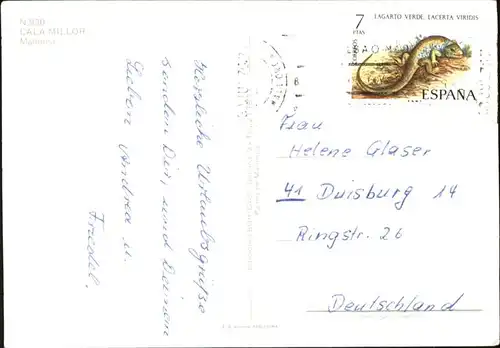 N.3030
CALA MILLOR
Mallorca
7
PTAS
LAGARTO VERDE. LACERTA VIRIDIS
CORREOS
ESPAÑA
Herzliche Urlaubsgrüße
senden Dir, und Deinen
Lieben Andrea u.
Friedel.
Frau
Helene Glaser
41 Duisburg 14
Ringstr. 26
Deutschland